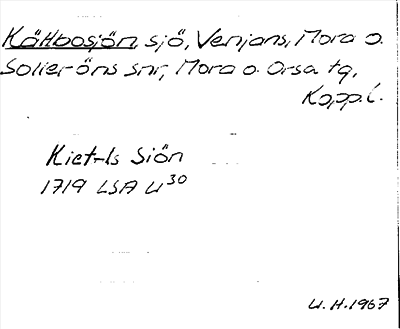 Kättbosjön, sjö, Venjans, Mora o.
Solleröns snr, Mora o. Orsa tg,
Kopp.l.
Kiet-ls Siön
1719 LSA U30
U.H.1967